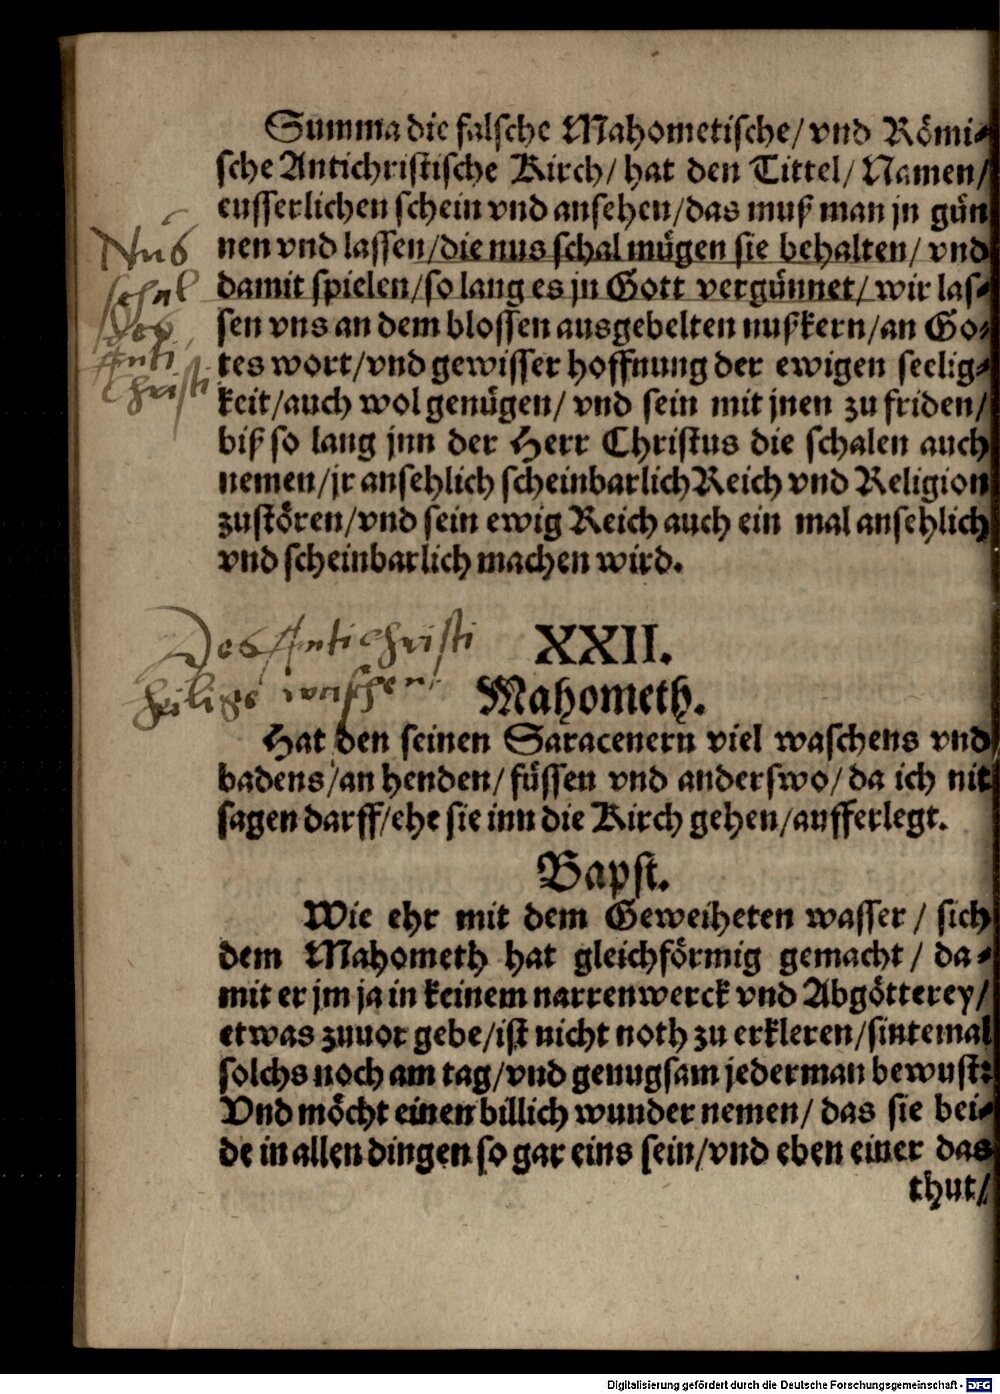 Summa die falsche Mahometische/ vnd Römi-
sche Antichristische Kirch/ hat den Tittel/ Namen/
eusserlichen schein vnd ansehen/das muß man jn gün
nen vnd lassen/die nus schal mügen sie behalten/ vnd
damit spielen/so lang es jn Gott vergünnet/ wir las-
sen vns an dem blossen ausgebelten nußkern/an Go-
tes wort/vnd gewisser hoffnung der ewigen seelig-
keit/auch wol genügen/ vnd sein mit jnen zu friden/
biß so lang jnn der Herr Christus die schalen auch
nemen/jr ansehlich scheinbarlich Reich vnd Religion
zustören/vnd sein ewig Reich auch ein mal ansehlich
vnd scheinbarlich machen wird.
Nus
schal
des
Anti
Christi
Des Antichristi
heilige waschen
XXII.
Mahometh.
Hat den seinen Saracenern viel waschens vnd
badens/an henden/füssen vnd anderswo/da ich nit
sagen darff/ehe sie inn die Kirch gehen/aufferlegt.
Bapst.
Wie ehr mit dem Geweiheten wasser/ sich
dem Mahometh hat gleichförmig gemacht/ da-
mit er jm ja in keinem narrenwerck vnd Abgötterey/
etwas zuuor gebe/ist nicht noth zu erkleren/sintemal
solchs noch am tag/vnd genugsam jederman bewust:
Vnd möcht einen billich wunder nemen/ das sie bei-
de in allen dingen so gar eins sein/vnd eben einer das
thut/
Digitalisierung gefördert durch die Deutsche Forschungsgemeinschaft - DFG